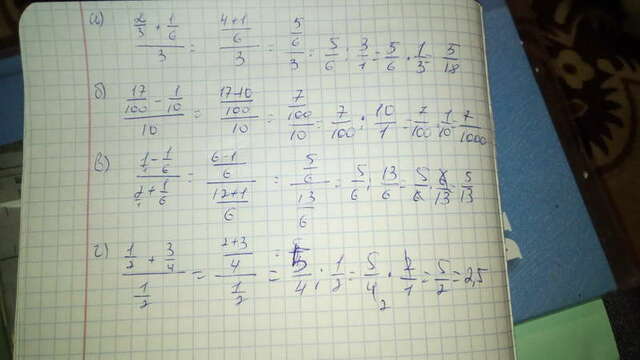 а) (2/3 + 1/6)/3 = ((4+1)/6)/3 = (5/6)/3 = 5/6 : 3/1 = 5/6 · 1/3 = 5/18
б) (17/100 - 1/10)/10 = ((17-10)/100)/10 = (7/100)/10 = 7/100 : 10/1 = 7/100 · 1/10 = 7/1000
в) (1/1 - 1/6)/(2/1 + 1/6) = ((6-1)/6)/((12+1)/6) = (5/6)/(13/6) = 5/6 : 13/6 = 5/6 · 6/13 = 5/13
г) (1/2 + 3/4)/(1/2) = ((2+3)/4)/(1/2) = 5/4 : 1/2 = 5/4 · 2/1 = 5/2 = 2,5
2